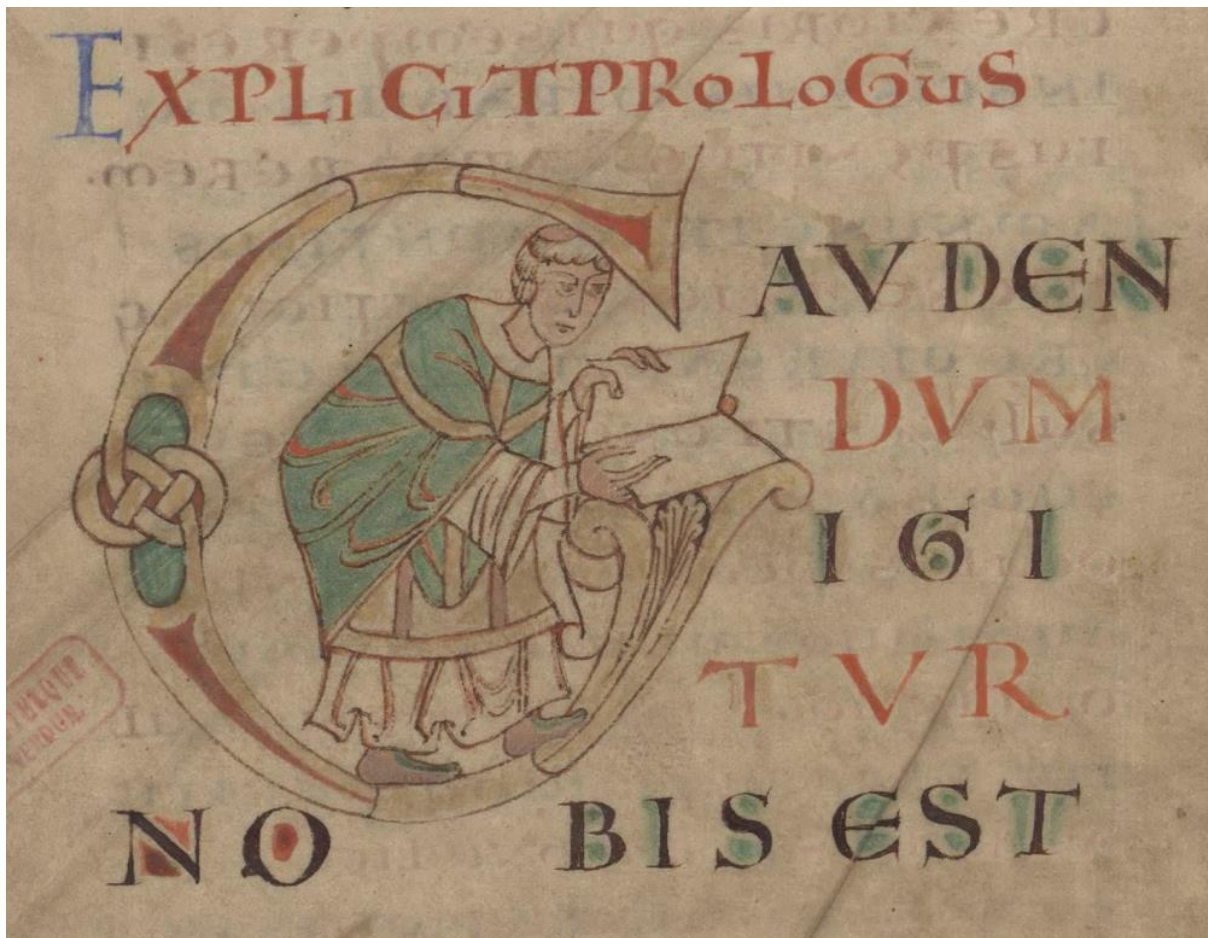 EXPLICITPROLOGUS
GAVDEN
DVM
IGI
TVR
NO BIS EST